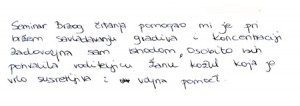 Seminar Brzog čitanja pomogao mi je pri
bržem savladavanju gradiva i koncentraciji
Zadovoljna sam ishodom, osobito bih
pohvalila voditeljicu Žanu Kožul koja je
vrlo susretljiva i voljna pomoći.